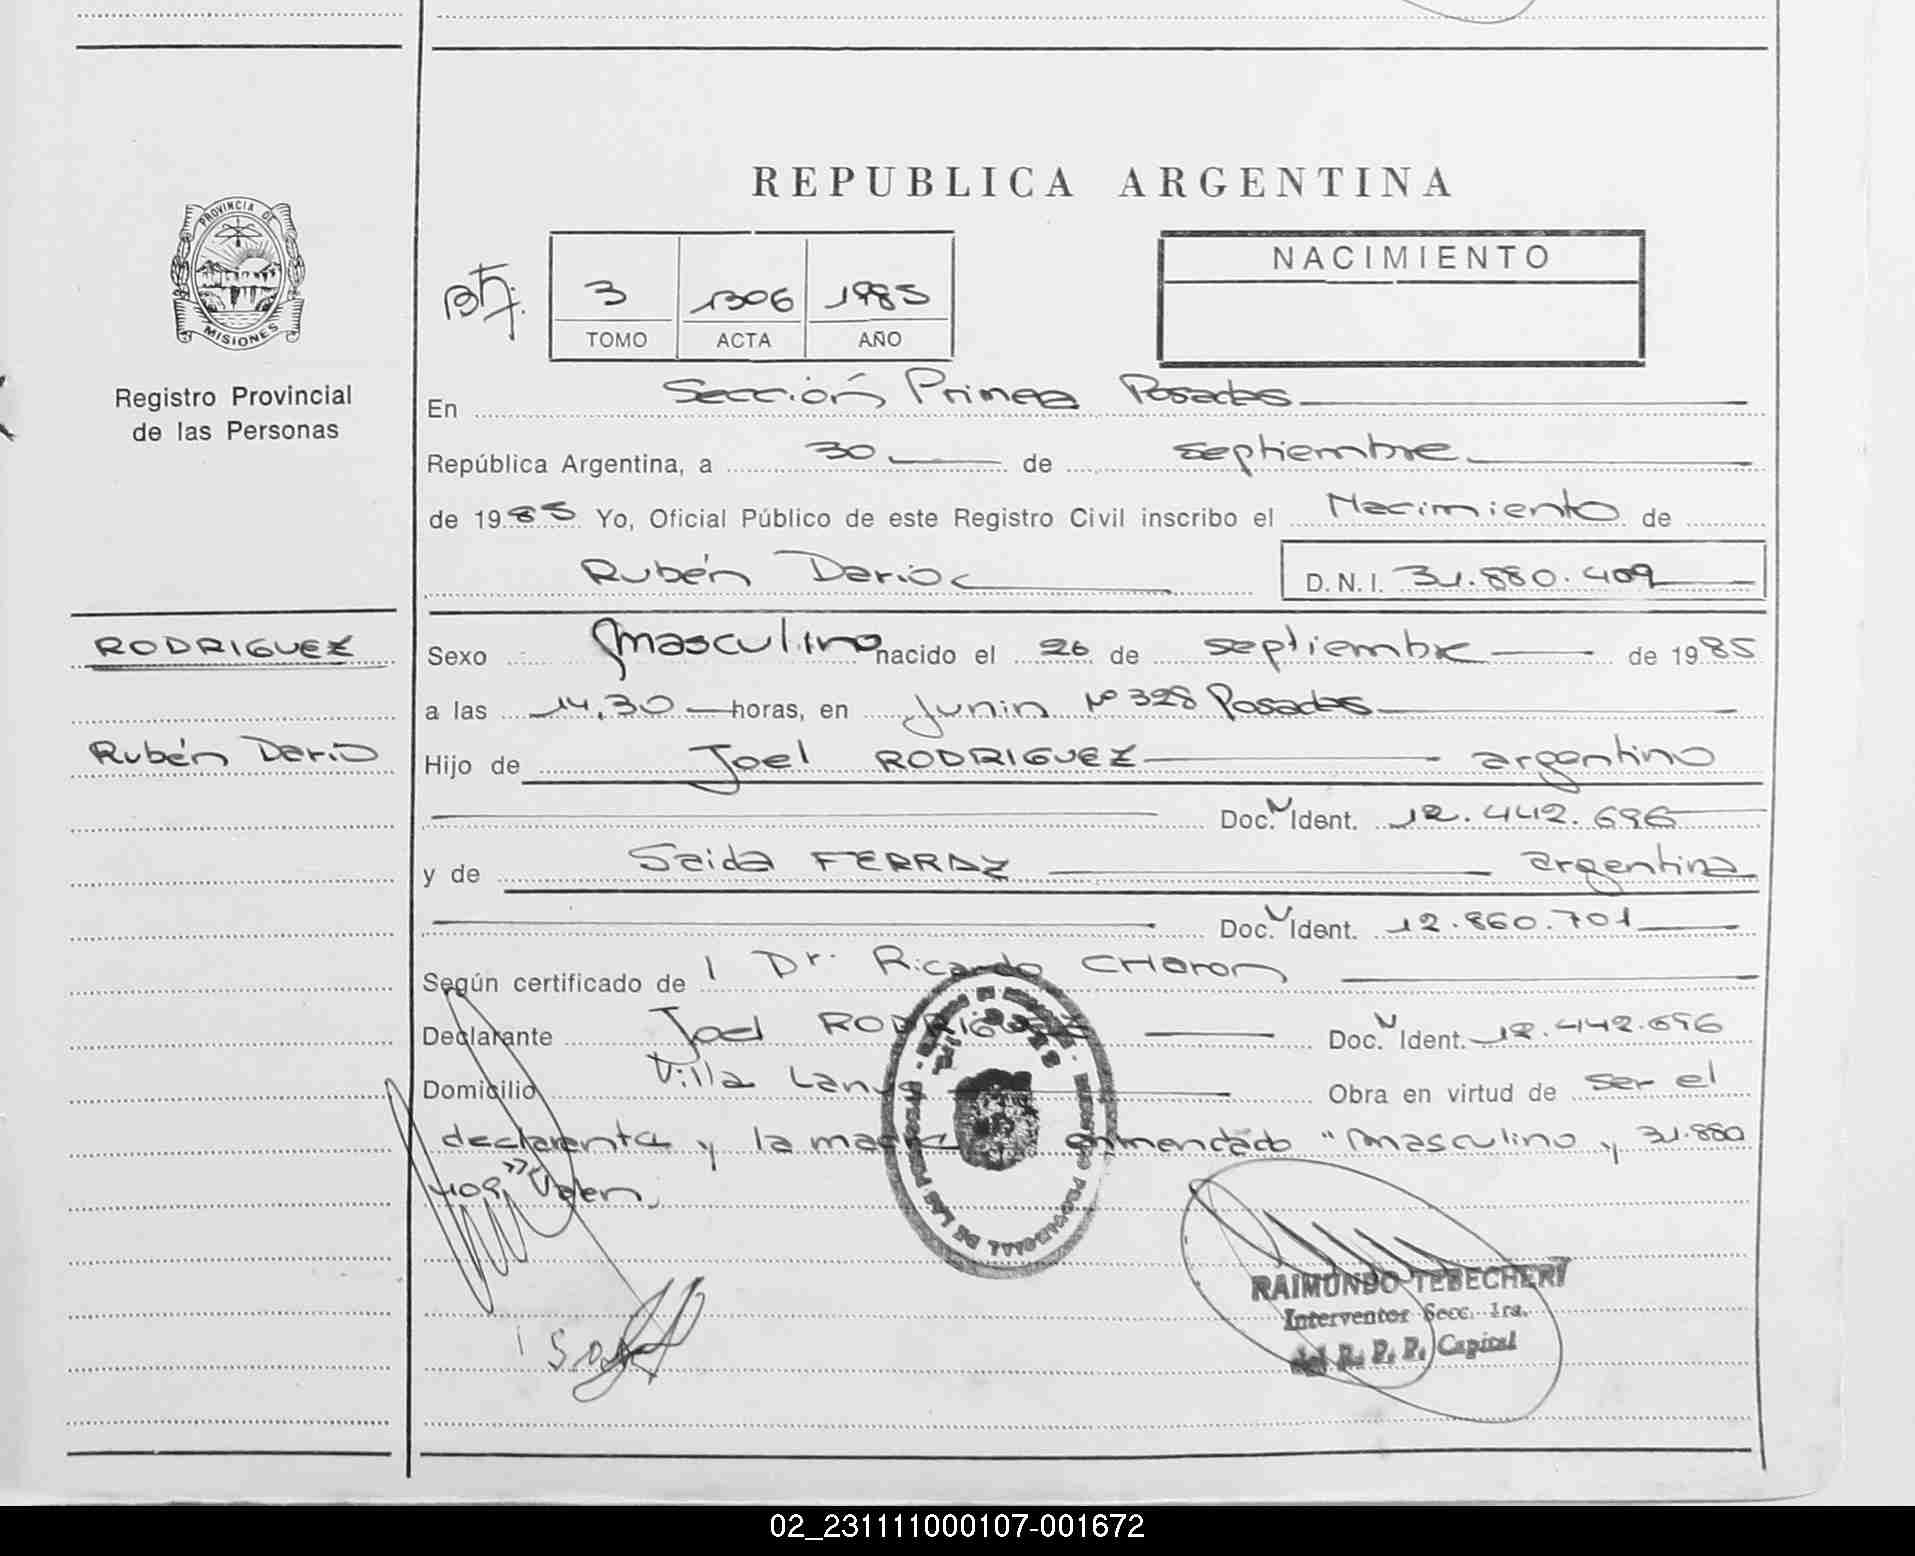 REPUBLICA ARGENTINA
PROVINCIA DE
MISIONES
Registro Provincial
de las Personas
3 1306 1985
TOMO ACTA AÑO
NACIMIENTO
En Sección Primera Posadas
República Argentina, a 30 de septiembre
de 1985 Yo, Oficial Público de este Registro Civil inscribo el Nacimiento de
Rubén Dario D.N.I. 31.880.409
RODRIGUEZ
Rubén Dario
Sexo masculino nacido el 26 de septiembre de 1985
a las 14,30 horas, en Junin Nº 328 Posadas
Hijo de Joel RODRIGUEZ argentino
Doc. N Ident. 12.442.696
y de Saida FERRAZ argentina
Doc. N Ident. 12.860.701
Según certificado de Dr. Ricardo
Declarante Joel RODRIGUEZ Doc. N Ident. 12.442.696
Domicilio Villa Lanus Obra en virtud de ser el
declarante y la madre enmendado "masculino y 31.880
409" Valen.
RAIMUNDO TEBECHERI
Interventor Secc. 1ra.
del R. P. P. Capital
02_231111000107-001672